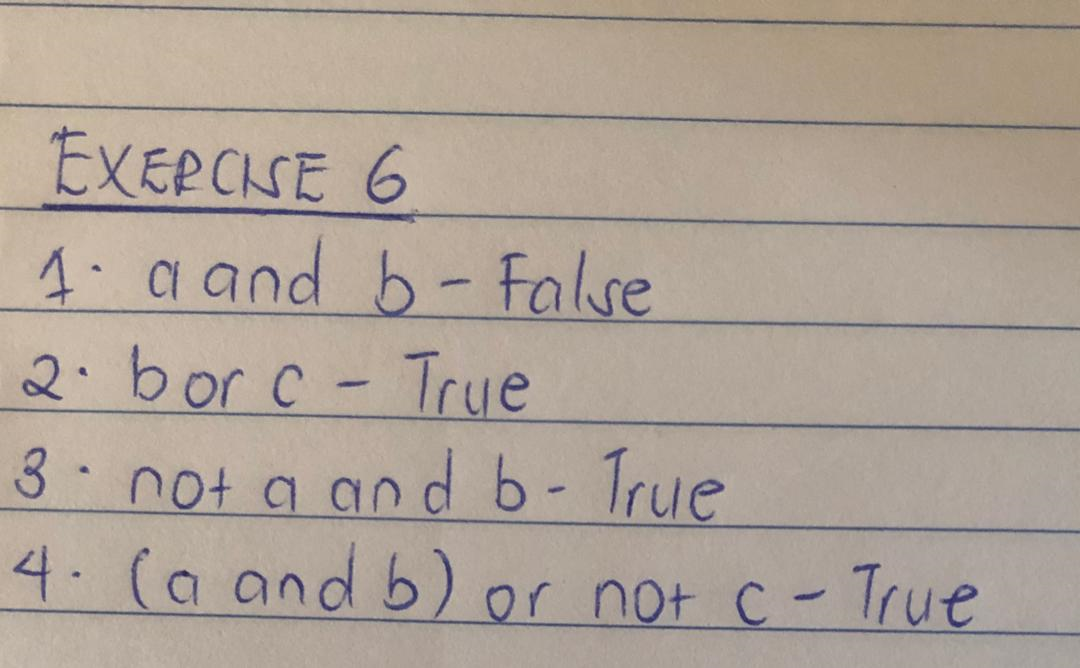 EXERCISE 6
1. a and b - False
2. b or c - True
3. not a and b - True
4. (a and b) or not c - True